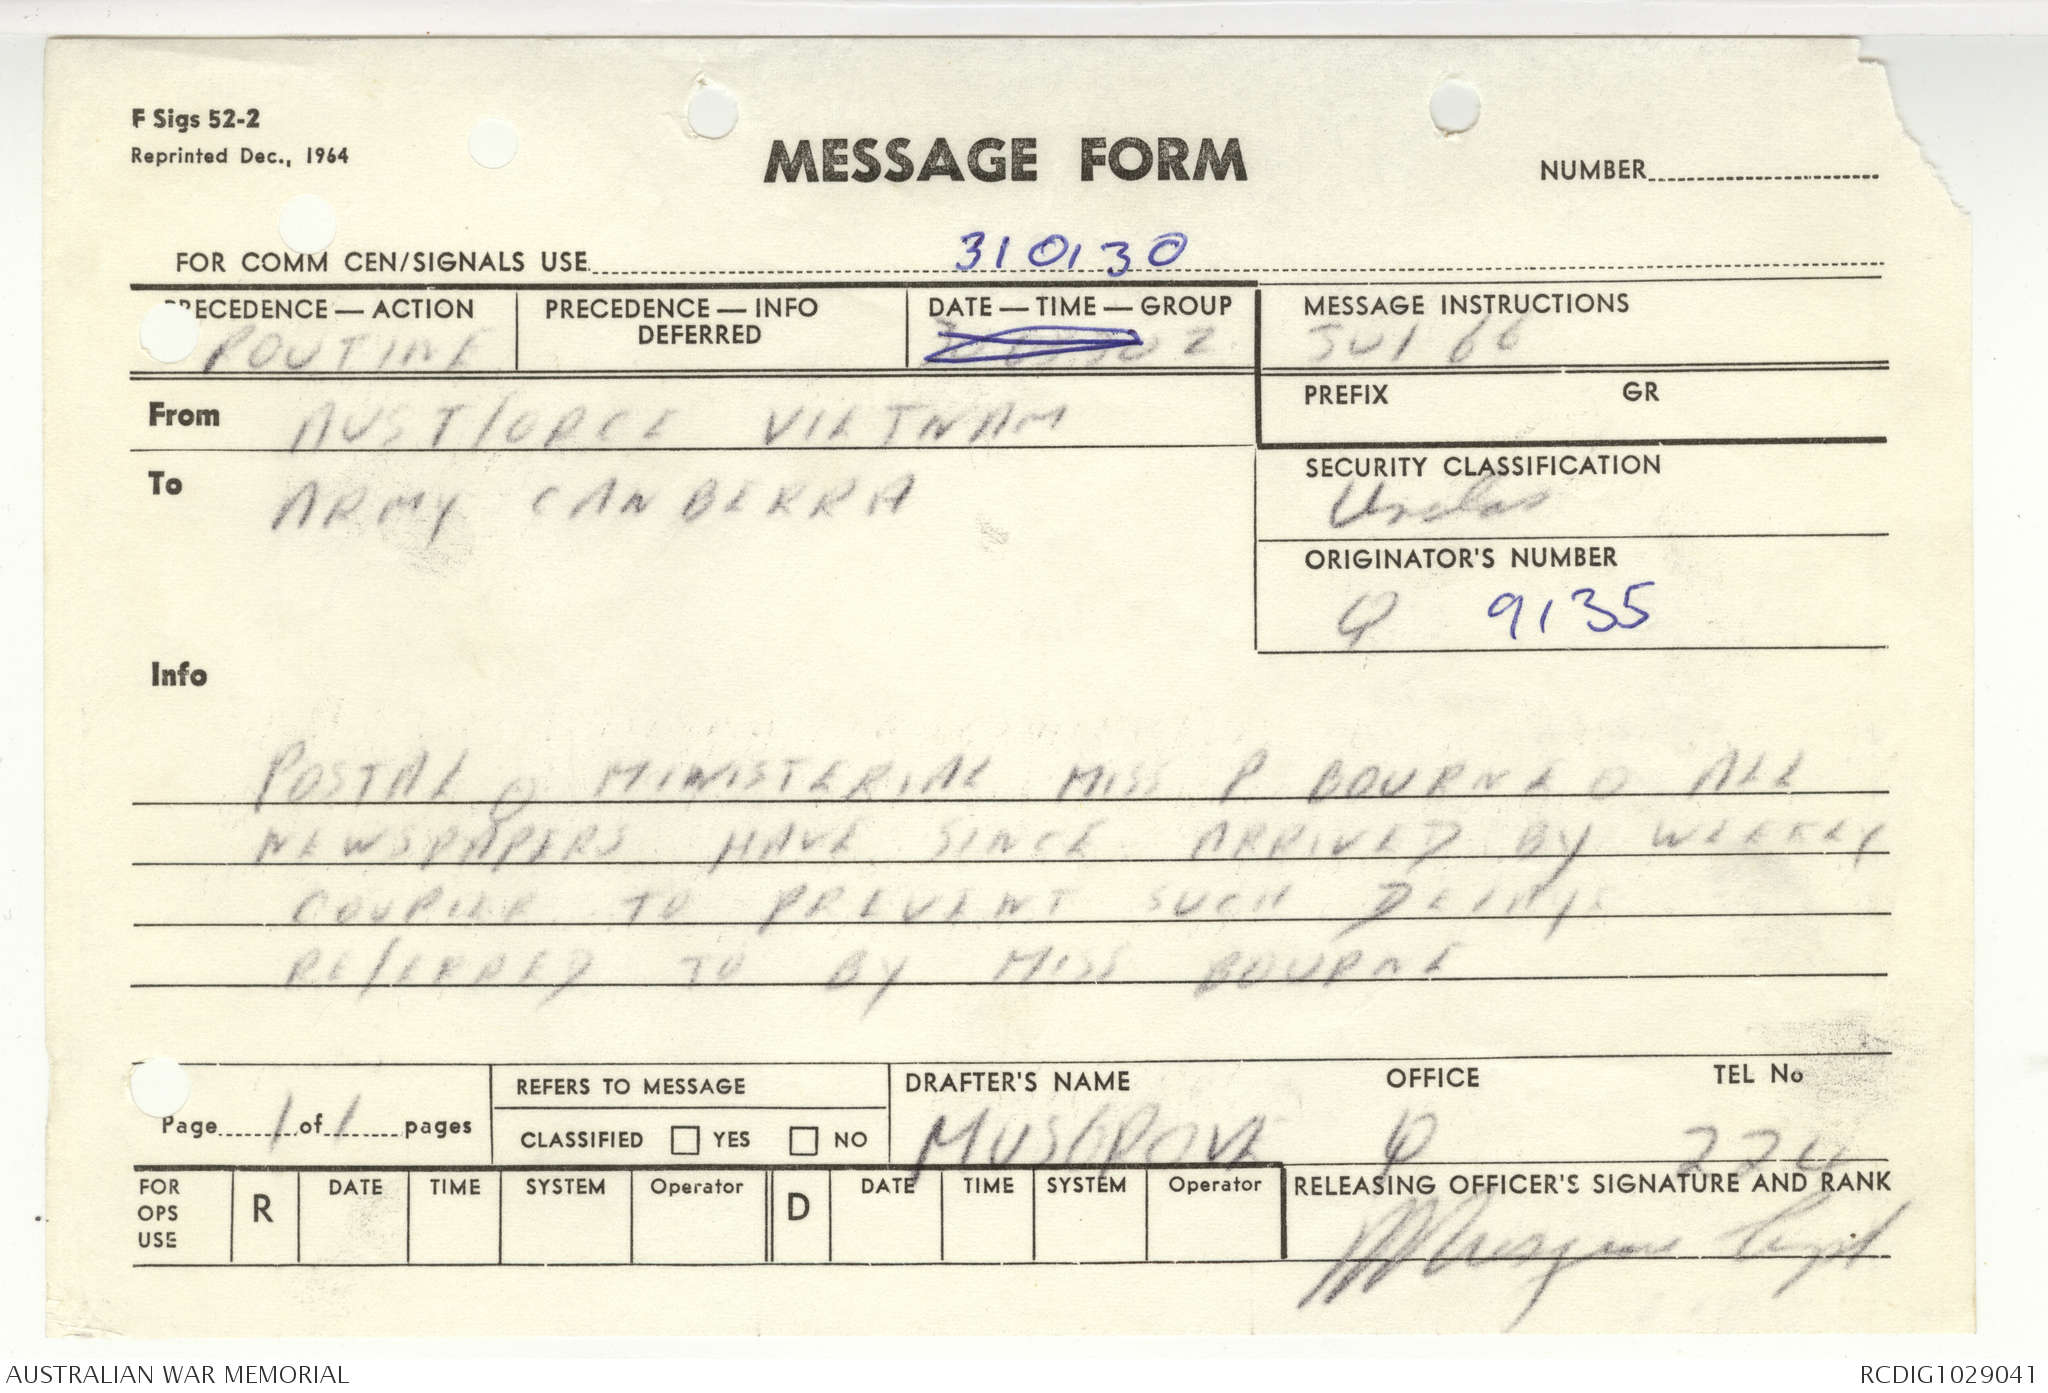 F Sigs 52-2
Reprinted Dec., 1964
MESSAGE FORM
NUMBER
FOR COMM CEN/SIGNALS USE 310130
PRECEDENCE — ACTION
ROUTINE
PRECEDENCE — INFO
DEFERRED
DATE — TIME — GROUP
Z
MESSAGE INSTRUCTIONS
JUL 66
PREFIX GR
From AUSTFORCE VIETNAM
To ARMY CANBERRA
SECURITY CLASSIFICATION
Unclas
ORIGINATOR'S NUMBER
Q 9135
Info
POSTAL O MINISTERIAL MISS P BOURNE O ALL
NEWSPAPERS HAVE SINCE ARRIVED BY WEEKLY
COURIER TO PREVENT SUCH DELAYS
REFERRED TO BY MISS BOURNE
Page 1 of 1 pages
REFERS TO MESSAGE
CLASSIFIED YES NO
DRAFTER'S NAME OFFICE TEL No
MUSGROVE Q 224
FOR OPS USE
R DATE TIME SYSTEM Operator
D DATE TIME SYSTEM Operator
RELEASING OFFICER'S SIGNATURE AND RANK
Musgrove
AUSTRALIAN WAR MEMORIAL
RCDIG1029041